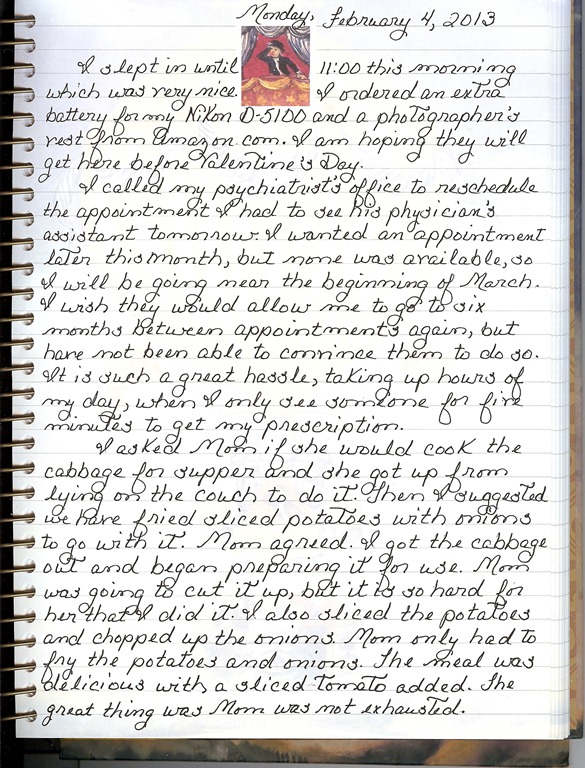 Monday, February 4, 2013
I slept in until 11:00 this morning
which was very nice. I ordered an extra
battery for my Nikon D-5100 and a photographer's
vest from Amazon.com. I am hoping they will
get here before Valentine's Day.
I called my psychiatrist's office to reschedule
the appointment I had to see his physician's
assistant tomorrow. I wanted an appointment
later this month, but none was available, so
I will be going near the beginning of March.
I wish they would allow me to go to six
months between appointments again, but
have not been able to convince them to do so.
It is such a great hassle, taking up hours of
my day, when I only see someone for five
minutes to get my prescription.
I asked Mom if she would cook the
cabbage for supper and she got up from
lying on the couch to do it. Then I suggested
we have fried sliced potatoes with onions
to go with it. Mom agreed. I got the cabbage
out and began preparing it for use. Mom
was going to cut it up, but it is so hard for
her that I did it. I also sliced the potatoes
and chopped up the onions. Mom only had to
fry the potatoes and onions. The meal was
delicious with a sliced tomato added. The
great thing was Mom was not exhausted.